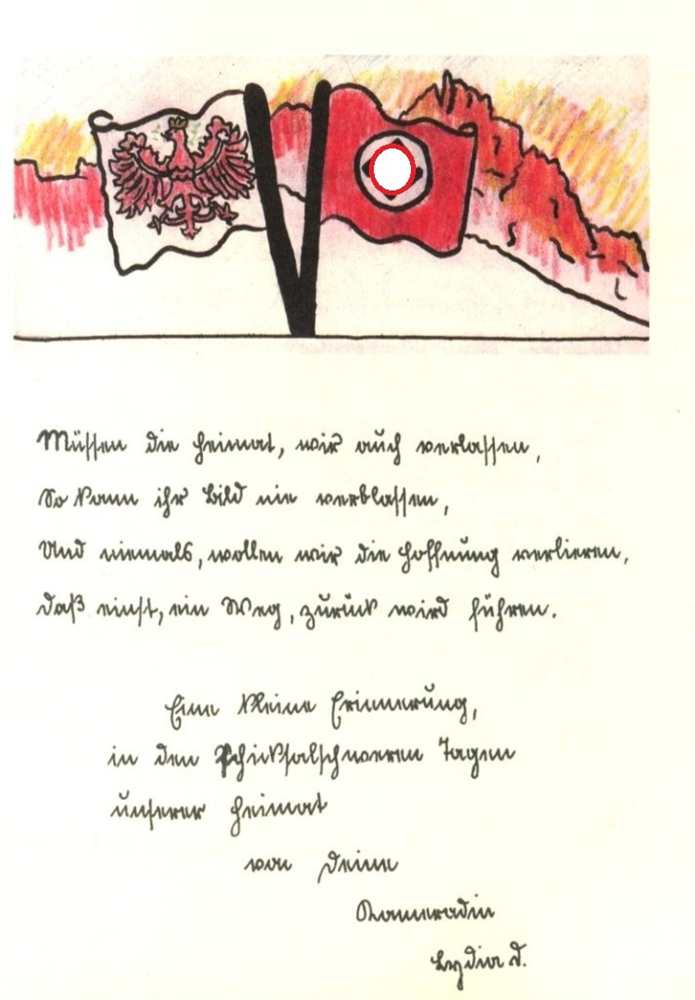 Müssen die Heimat, wir auch verlassen,
So kann ihr Bild nie verblassen,
Und niemals, wollen wir die Hoffnung verlieren,
daß einst, ein Weg, zurück wird führen.
Eine kleine Erinnerung,
in den Schicksalschweren Tagen
unserer Heimat
von Deine
Kameradin
Lydia D.